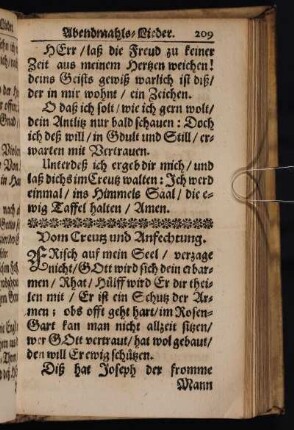 Abendmahls-Lieder. 209
HErr/ laß die Freud zu keiner
Zeit aus meinem Hertzen weichen!
deins Geists gewiß warlich ist diß/
der in mir wohnt/ ein Zeichen.
O daß ich solt/ wie ich gern wolt/
dein Antlitz nur bald schauen: Doch
ich deß will/ in Gdult und Still/ er-
warten mit Vertrauen.
Unterdeß ich ergeb dir mich/ und
laß dichs im Creutz walten: Ich werd
einmal/ ins Himmels Saal/ die e-
wig Taffel halten/ Amen.
Vom Creutz und Anfechtung.
FRisch auf mein Seel/ verzage
nicht/ GOtt wird sich dein erbar-
men/ Rhat/ Hülff wird Er dir thei-
len mit/ Er ist ein Schutz der Ar-
men; obs offt geht hart/ im Rosen-
Gart kan man nicht allzeit sitzen/
wer GOtt vertraut/ hat wol gebaut/
den will Er ewig schützen.
Diß hat Joseph der fromme
Mann